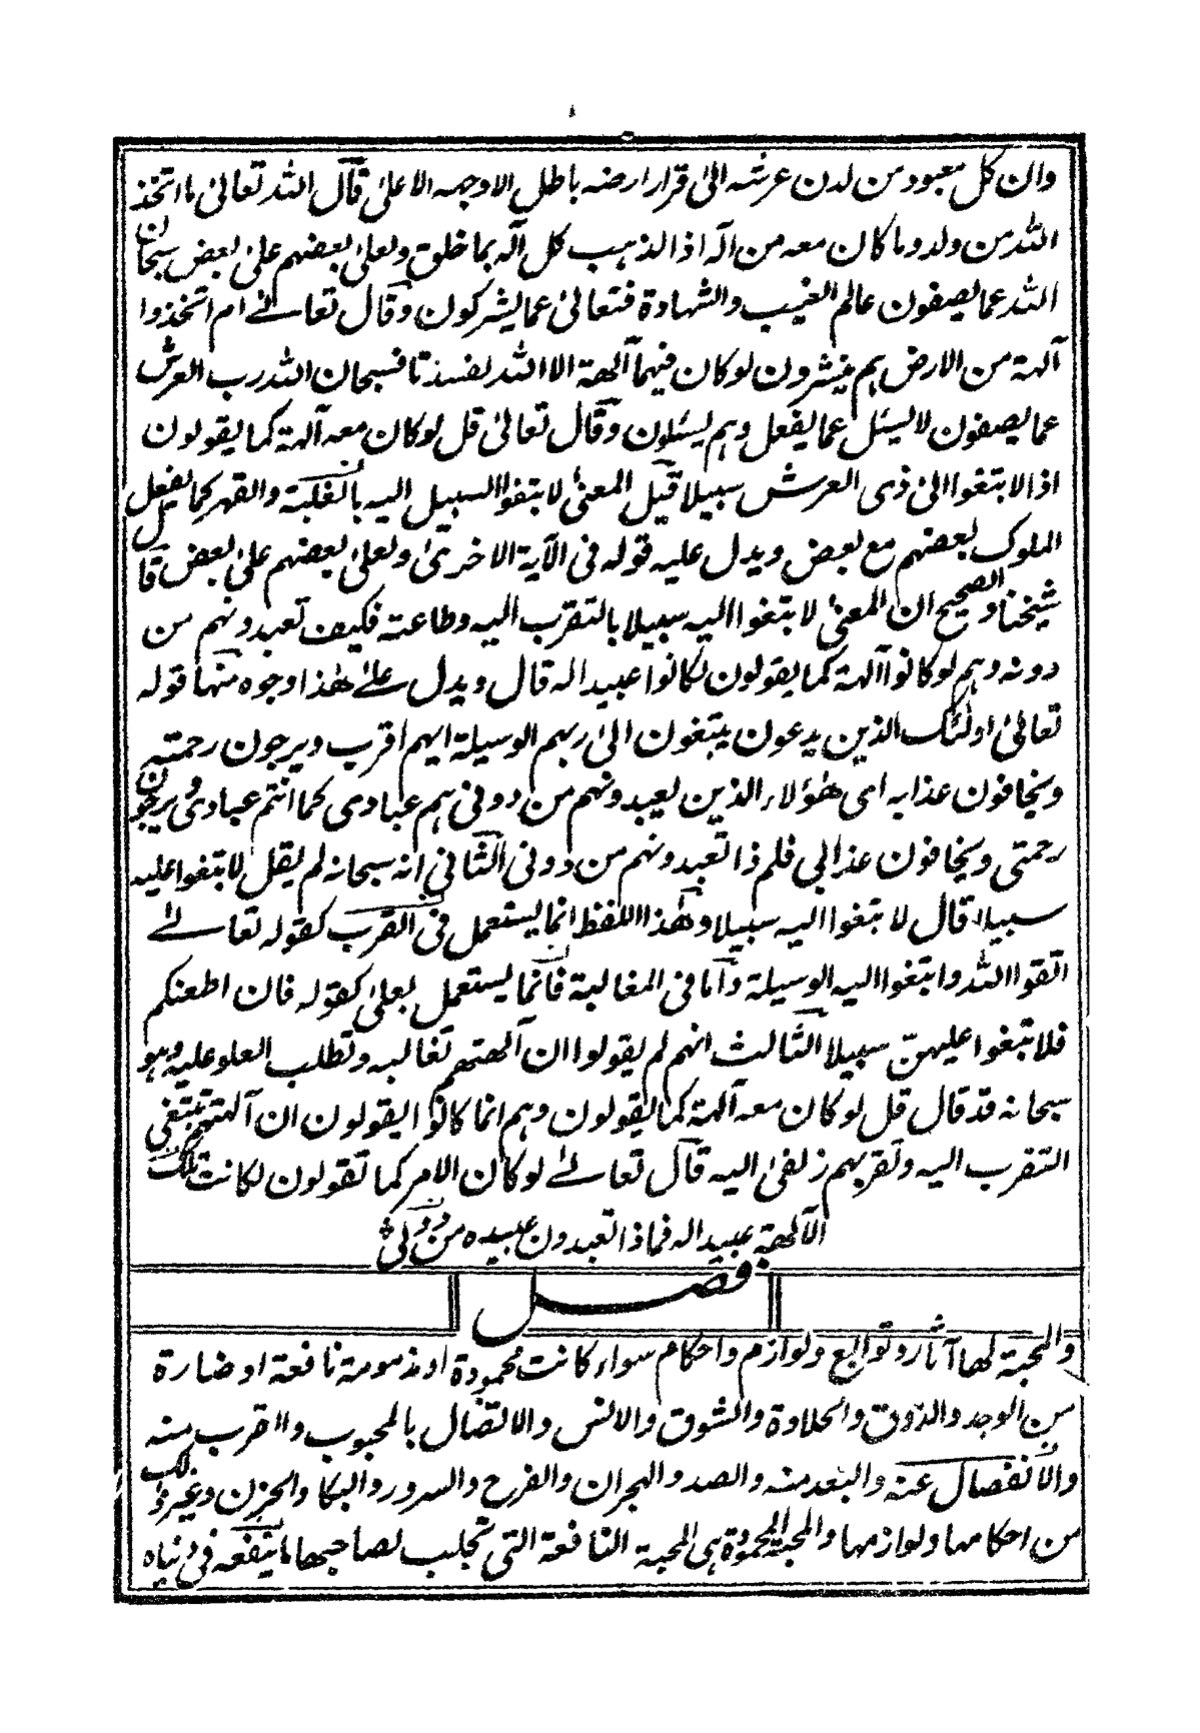 ٨
وان كل معبود من لدن عرشه الى قرار ارضه باطل الا وجهه الاعلىٰ قال الله تعالىٰ ما اتخذ
الله من ولد وما كان معه من اله اذا لذهب كل اله بما خلق ولعلىٰ بعضهم علىٰ بعض سبحان
الله عما يصفون عالم الغيب والشهادة فتعالىٰ عما يشركون وقال تعالىٰ ام اتخذوا
آلهة من الارض هم ينشرون لو كان فيهما آلهة الا الله لفسدتا فسبحان الله رب العرش
عما يصفون لا يسئل عما يفعل وهم يسئلون وقال تعالىٰ قل لو كان معه آلهة كما يقولون
اذا لابتغوا الىٰ ذى العرش سبيلا قيل المعنىٰ لابتغوا السبيل اليه بالغلبة والقهر كما يفعل
الملوك بعضهم مع بعض ويدل عليه قوله فى الآية الاخرىٰ ولعلىٰ بعضهم علىٰ بعض قال
شيخنا والصحيح ان المعنىٰ لابتغوا اليه سبيلا بالتقرب اليه وطاعته فكيف تعبدونهم من
دونه وهم لو كانوا آلهة كما يقولون لكانوا عبيدا له قال ويدل علىٰ هٰذا وجوه منها قوله
تعالىٰ اولٰئك الذين يدعون يبتغون الىٰ ربهم الوسيلة ايهم اقرب ويرجون رحمته
ويخافون عذابه اى هٰؤلاء الذين تعبدونهم من دونى هم عبادى كما انتم عبادى ويرجون
رحمتى ويخافون عذابى فلم ذا تعبدونهم من دونى الثانى انه سبحانه لم يقل لابتغوا عليه
سبيلا قال لابتغوا اليه سبيلا وهٰذا اللفظ انما يستعمل فى القرب كقوله تعالىٰ
اتقوا الله وابتغوا اليه الوسيلة واما فى المغالبة فانما يستعمل بعلىٰ كقوله فان اطعنكم
فلا تبغوا عليهنّ سبيلا الثالث انهم لم يقولوا ان آلهتهم تغالبه وتطلب العلو عليه وهو
سبحانه قد قال قل لو كان معه آلهة كما يقولون وهم انما كانوا يقولون ان آلهتهم تبتغى
التقرب اليه وتقربهم زلفىٰ اليه قال تعالىٰ لو كان الامر كما تقولون لكانت تلك
الآلهة عبيدا له فماذا تعبدون عبيده من دونى
فصل
والمحبة لها آثار وتوابع ولوازم واحكام سواء كانت محمودة او مذمومة نافعة او ضارة
من الوجد والذوق والحلاوة والشوق والانس والاتصال بالمحبوب والقرب منه
والانفصال عنه والبعد منه والصد والهجران والفرح والسرور والبكا والحزن وغير ذلك
من احكامها ولوازمها والمحبة المحمودة هى المحبة النافعة التى تجلب لصاحبها ما ينفعه فى دنياه